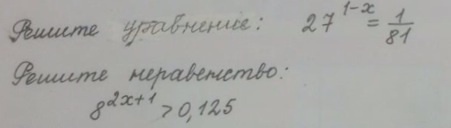 Решите уравнение: 27^{1-x} = 1/81
Решите неравенство:
8^{2x+1} > 0,125